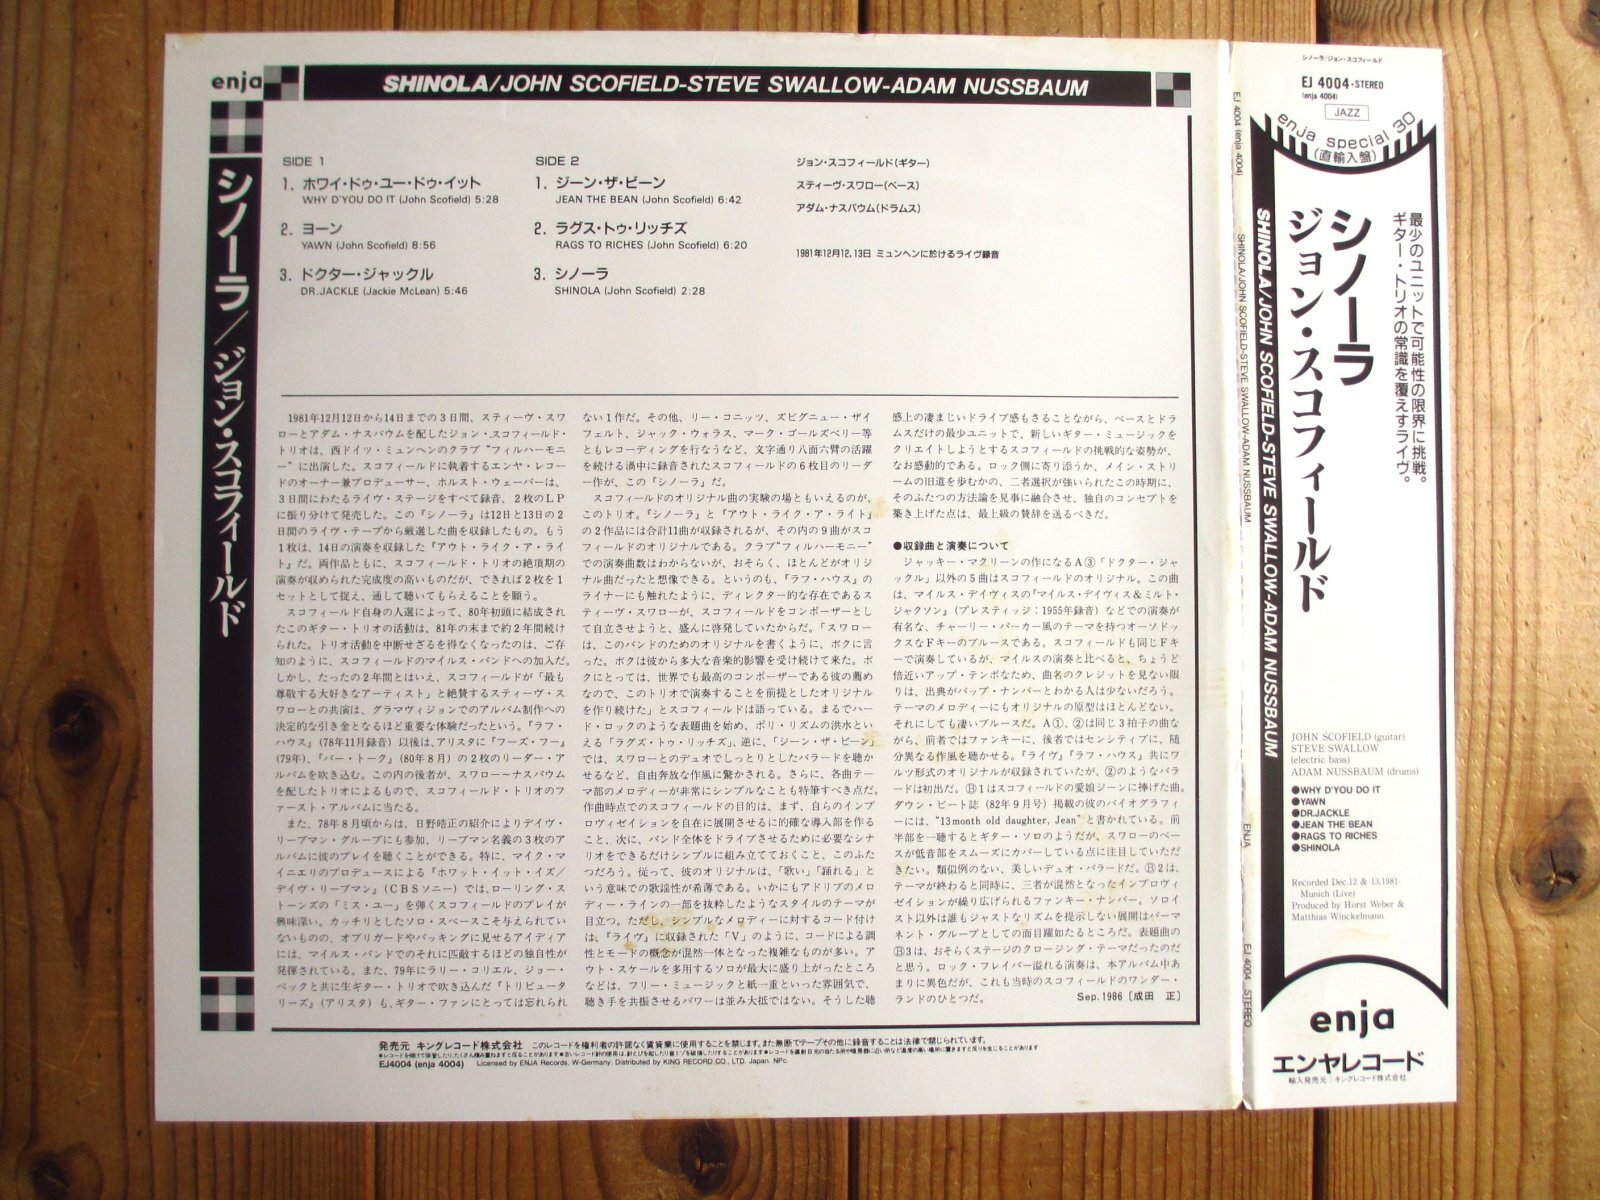 enja
SHINOLA/JOHN SCOFIELD-STEVE SWALLOW-ADAM NUSSBAUM
シノーラ/ジョン・スコフィールド
SIDE 1
1. ホワイ・ドゥ・ユー・ドゥ・イット
WHY D'YOU DO IT (John Scofield) 5:28
2. ヨーン
YAWN (John Scofield) 8:56
3. ドクター・ジャックル
DR.JACKLE (Jackie McLean) 5:46
SIDE 2
1. ジーン・ザ・ビーン
JEAN THE BEAN (John Scofield) 6:42
2. ラグス・トゥ・リッチズ
RAGS TO RICHES (John Scofield) 6:20
3. シノーラ
SHINOLA (John Scofield) 2:28
ジョン・スコフィールド(ギター)
スティーヴ・スワロー(ベース)
アダム・ナスバウム(ドラムス)
1981年12月12,13日 ミュンヘンに於けるライヴ録音
1981年12月12日から14日までの3日間、スティーヴ・スワ
ローとアダム・ナスバウムを配したジョン・スコフィールド・
トリオは、西ドイツ・ミュンヘンのクラブ“フィルハーモニ
ー”に出演した。スコフィールドに執着するエンヤ・レコー
ドのオーナー兼プロデューサー、ホルスト・ウェーバーは、
3日間にわたるライヴ・ステージをすべて録音、2枚のLP
に振り分けて発売した。この『シノーラ』は12日と13日の2
日間のライヴ・テープから厳選した曲を収録したもの。もう
1枚は、14日の演奏を収録した『アウト・ライク・ア・ライ
ト』だ。両作品ともに、スコフィールド・トリオの絶頂期の
演奏が収められた完成度の高いものだが、できれば2枚を1
セットとして捉え、通して聴いてもらえることを願う。
スコフィールド自身の人選によって、80年初頭に結成され
たこのギター・トリオの活動は、81年の末まで約2年間続け
られた。トリオ活動を中断せざるを得なくなったのは、ご存
知のように、スコフィールドのマイルス・バンドへの加入だ。
しかし、たったの2年間とはいえ、スコフィールドが「最も
尊敬する大好きなアーティスト」と絶賛するスティーヴ・ス
ワローとの共演は、グラマヴィジョンでのアルバム制作への
決定的な引き金となるほど重要な体験だったという。『ラフ・
ハウス』(78年11月録音)以後は、アリスタに『フーズ・フー』
(79年)、『バー・トーク』(80年8月)の2枚のリーダー・ア
ルバムを吹き込む。この内の後者が、スワロー〜ナスバウム
を配したトリオによるもので、スコフィールド・トリオのフ
ァースト・アルバムに当たる。
また、78年8月頃からは、日野皓正の紹介によりデイヴ・
リーブマン・グループにも参加、リーブマン名義の3枚のア
ルバムに彼のプレイを聴くことができる。特に、マイク・マ
イニエリのプロデュースによる『ホワット・イット・イズ/
デイヴ・リーブマン』(CBSソニー)では、ローリング・ス
トーンズの「ミス・ユー」を弾くスコフィールドのプレイが
興味深い。カッチリとしたソロ・スペースこそ与えられてい
ないものの、オブリガードやバッキングに見せるアイディア
には、マイルス・バンドでのそれに匹敵するほどの独自性が
発揮されている。また、79年にラリー・コリエル、ジョー・
ベックと共に生ギター・トリオで吹き込んだ『トリビュータ
リーズ』(アリスタ)も、ギター・ファンにとっては忘れられ
ない1作だ。その他、リー・コニッツ、ズビグニュー・ザイ
フェルト、ジャック・ウォラス、マーク・ゴールズベリー等
ともレコーディングを行なうなど、文字通り八面六臂の活躍
を続ける渦中に録音されたスコフィールドの6枚目のリーダ
ー作が、この『シノーラ』だ。
スコフィールドのオリジナル曲の実験の場ともいえるのが、
このトリオ。『シノーラ』と『アウト・ライク・ア・ライト』
の2作品には合計11曲が収録されるが、その内の9曲がスコ
フィールドのオリジナルである。クラブ“フィルハーモニー”
での演奏曲数はわからないが、おそらく、ほとんどがオリジ
ナル曲だったと想像できる。というのも、『ラフ・ハウス』の
ライナーにも触れたように、ディレクター的な存在であるス
ティーヴ・スワローが、スコフィールドをコンポーザーとし
て自立させようと、盛んに啓発していたからだ。「スワロー
は、このバンドのためのオリジナルを書くように、ボクに言
った。ボクは彼から多大な音楽的影響を受け続けて来た。ボ
クにとっては、世界でも最高のコンポーザーである彼の薦め
なので、このトリオで演奏することを前提としたオリジナル
を作り続けた」とスコフィールドは語っている。まるでハー
ド・ロックのような表題曲を始め、ポリ・リズムの洪水とい
える「ラグズ・トゥ・リッチズ」、逆に、「ジーン・ザ・ビーン」
では、スワローとのデュオでしっとりとしたバラードを聴か
せるなど、自由奔放な作風に驚かされる。さらに、各曲テー
マ部のメロディーが非常にシンプルなことも特筆すべき点だ。
作曲時点でのスコフィールドの目的は、まず、自らのインプ
ロヴィゼイションを自在に展開させるに的確な導入部を作る
こと、次に、バンド全体をドライブさせるために必要なシナ
リオをできるだけシンプルに組み立てておくこと、このふた
つだろう。従って、彼のオリジナルは、「歌い」「踊れる」と
いう意味での歌謡性が希薄である。いかにもアドリブのメロ
ディー・ラインの一部を抜粋したようなスタイルのテーマが
目立つ。ただし、シンプルなメロディーに対するコード付け
は、『ライヴ』に収録された「V」のように、コードによる調
性とモードの概念が混然一体となった複雑なものが多い。ア
ウト・スケールを多用するソロが最大に盛り上がったところ
などは、フリー・ミュージックと紙一重といった雰囲気で、
聴き手を共振させるパワーは並み大抵ではない。そうした聴
感上の凄まじいドライブ感もさることながら、ベースとドラ
ムスだけの最少ユニットで、新しいギター・ミュージックを
クリエイトしようとするスコフィールドの挑戦的な姿勢が、
なお感動的である。ロック側に寄り添うか、メイン・ストリ
ームの旧道を歩むかの、二者選択が強いられたこの時期に、
そのふたつの方法論を見事に融合させ、独自のコンセプトを
築き上げた点は、最上級の賛辞を送るべきだ。
●収録曲と演奏について
ジャッキー・マクリーンの作になるA③「ドクター・ジャ
ックル」以外の5曲はスコフィールドのオリジナル。この曲
は、マイルス・デイヴィスの『マイルス・デイヴィス&ミルト・
ジャクソン』(プレスティッジ:1955年録音)などでの演奏が
有名な、チャーリー・パーカー風のテーマを持つオーソドッ
クスなFキーのブルースである。スコフィールドも同じFキ
ーで演奏しているが、マイルスの演奏と比べると、ちょうど
倍近いアップ・テンポなため、曲名のクレジットを見ない限
りは、出典がバップ・ナンバーとわかる人は少ないだろう。
テーマのメロディーにもオリジナルの原型はほとんどない。
それにしても凄いブルースだ。A①、②は同じ3拍子の曲な
がら、前者ではファンキーに、後者ではセンシティブに、随
分異なる作風を聴かせる。『ライヴ』『ラフ・ハウス』共にワ
ルツ形式のオリジナルが収録されていたが、②のようなバラ
ードは初出だ。Ⓑ1はスコフィールドの愛娘ジーンに捧げた曲。
ダウン・ビート誌(82年9月号)掲載の彼のバイオグラフィ
ーには、“13 month old daughter, Jean”と書かれている。前
半部を一聴するとギター・ソロのようだが、スワローのベー
スが低音部をスムーズにカバーしている点に注目していただ
きたい。類似例のない、美しいデュオ・バラードだ。Ⓑ2は、
テーマが終わると同時に、三者が混然となったインプロヴィ
ゼイションが繰り広げられるファンキー・ナンバー。ソロイ
スト以外は誰もジャストなリズムを提示しない展開はパーマ
ネント・グループとしての面目躍如たるところだ。表題曲の
Ⓑ3は、おそらくステージのクロージング・テーマだったのだ
と思う。ロック・フレイバー溢れる演奏は、本アルバム中あ
まりに異色だが、これも当時のスコフィールドのワンダー・
ランドのひとつだ。
Sep.1986〔成田 正〕
発売元 キングレコード株式会社 このレコードを権利者の許諾なく賃貸業に使用することを禁じます。また無断でテープその他に録音することは法律で禁じられています。
EJ4004 (enja 4004) Licensed by ENJA Records, W-Germany. Distributed by KING RECORD CO., LTD. Japan. NPc.
EJ 4004 (enja 4004)
SHINOLA/JOHN SCOFIELD-STEVE SWALLOW-ADAM NUSSBAUM
ENJA
EJ 4004 STEREO
シノーラ/ジョン・スコフィールド
EJ 4004・STEREO
(enja 4004)
JAZZ
enja special 30
(直輸入盤)
最少のユニットで可能性の限界に挑戦。
ギター・トリオの常識を覆えすライヴ。
シノーラ
ジョン・スコフィールド
SHINOLA/JOHN SCOFIELD-STEVE SWALLOW-ADAM NUSSBAUM
JOHN SCOFIELD (guitar)
STEVE SWALLOW
(electric bass)
ADAM NUSSBAUM (drums)
●WHY D'YOU DO IT
●YAWN
●DR.JACKLE
●JEAN THE BEAN
●RAGS TO RICHES
●SHINOLA
Recorded Dec.12 & 13.1981-
Munich (Live)
Produced by Horst Weber &
Matthias Winckelmann
enja
エンヤレコード
輸入発売元:キングレコード株式会社